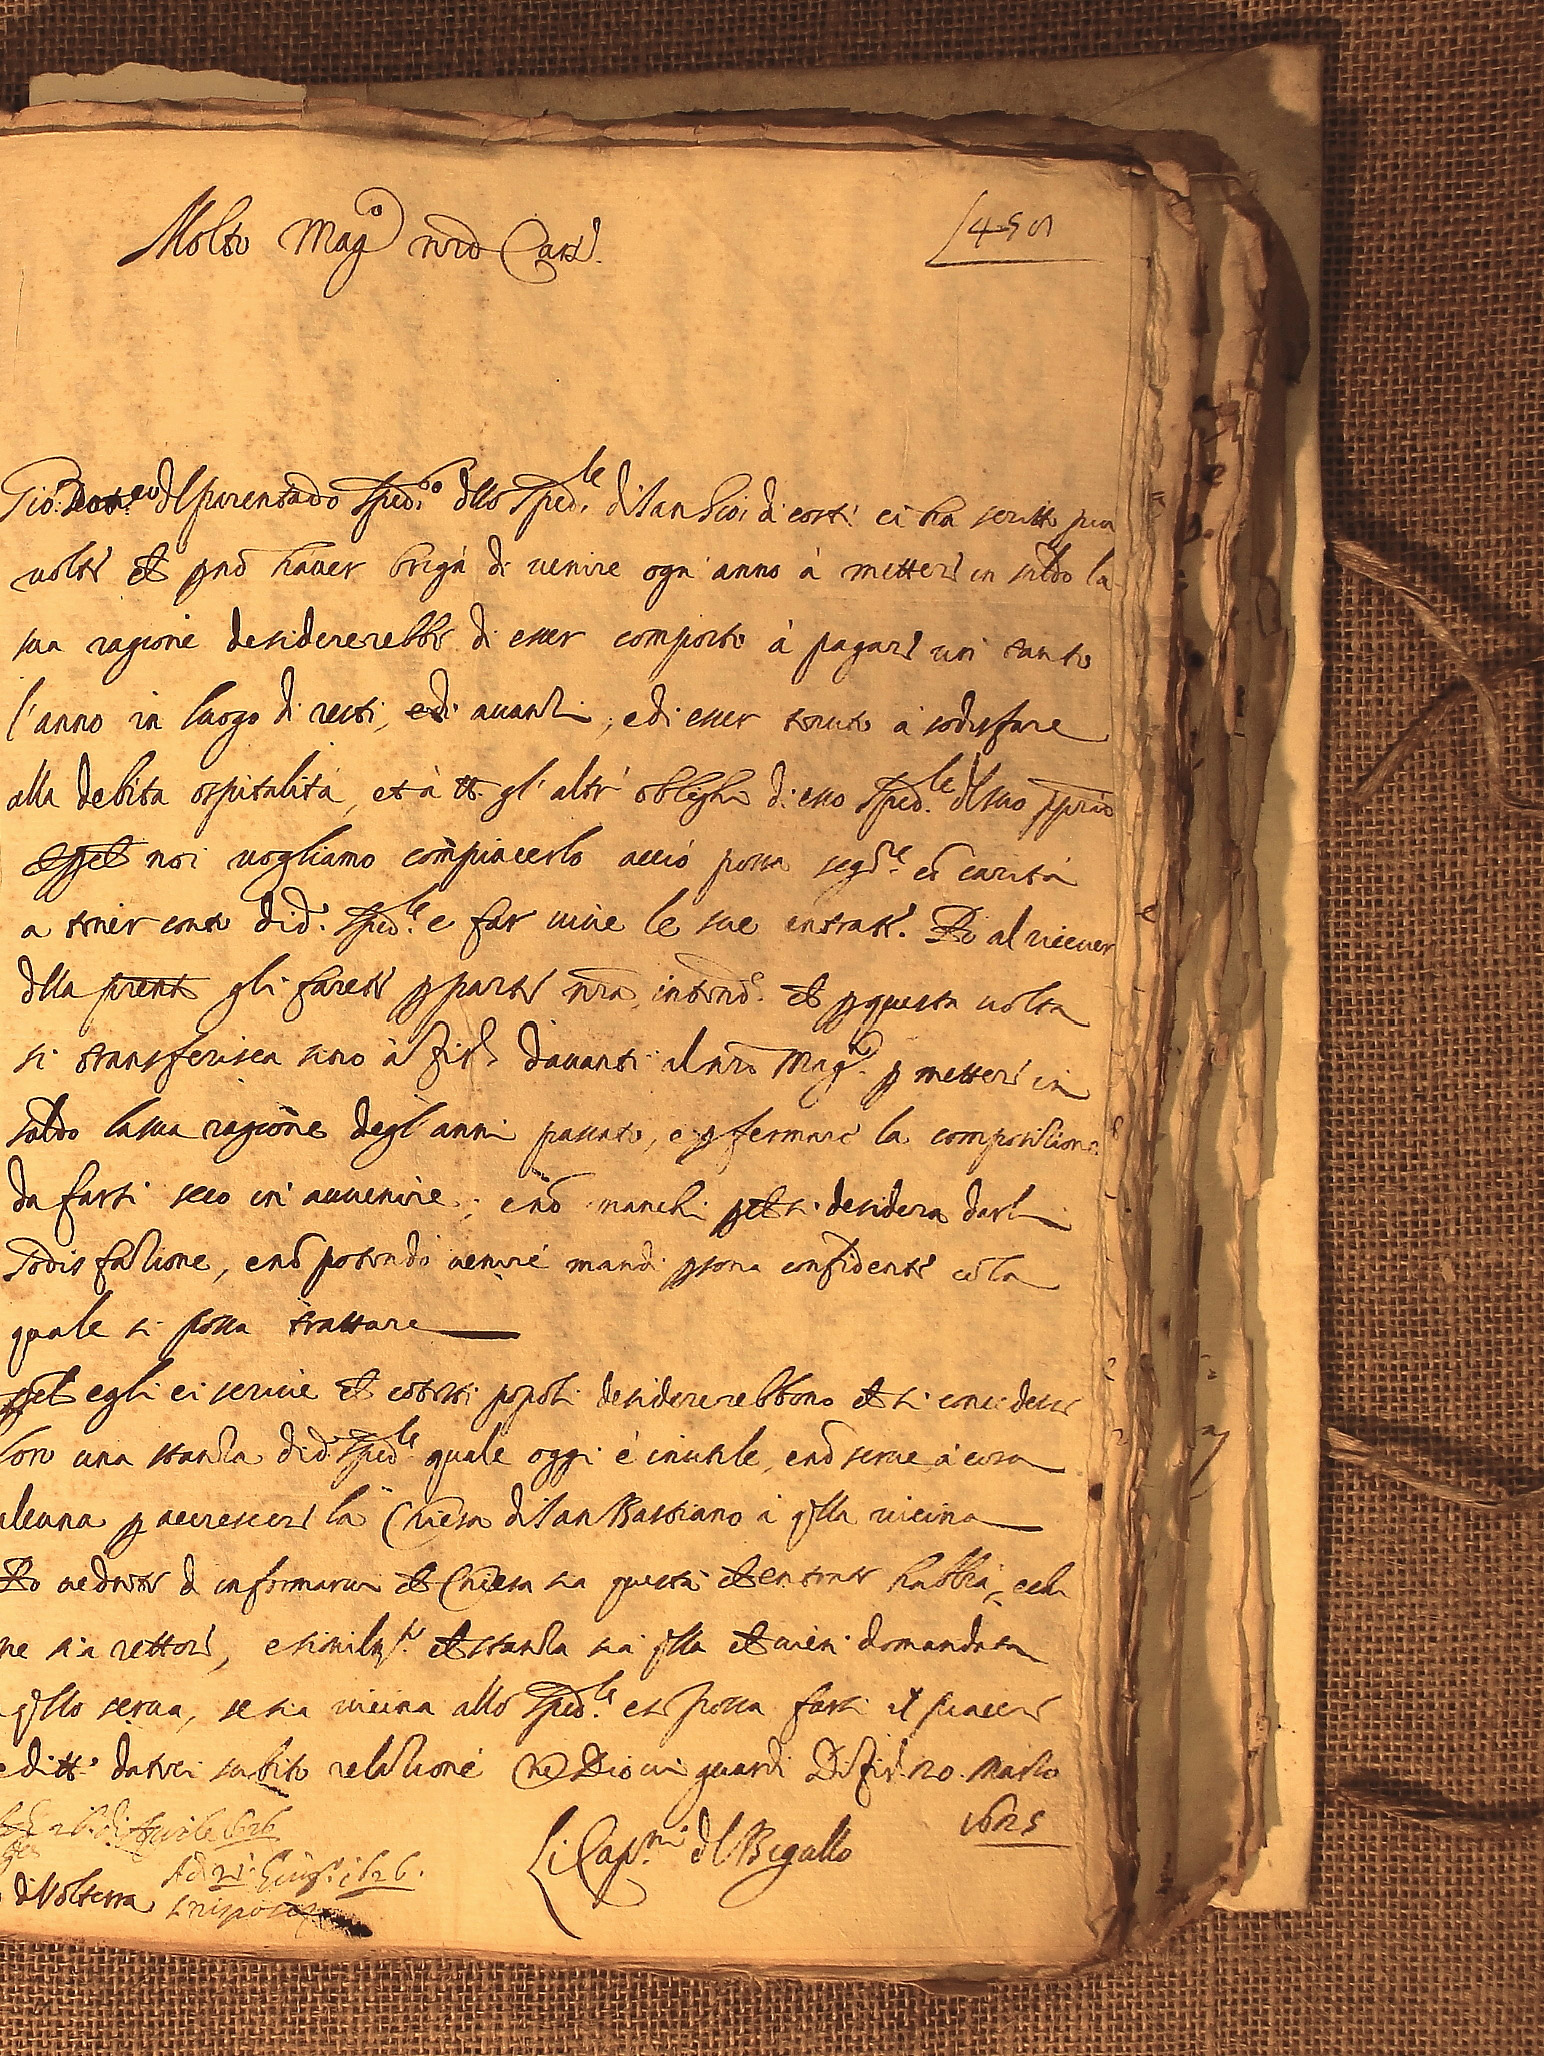 Molto Mag.co nro Car.mo
Gio: del Parentado sped.go dllo sped.le di san Gio: di costì ci ha scritto piu
volte et pnō haver briga di venire ogn'anno à mettere in saldo la
sua ragione desidererebbe di esser composto à pagare un tanto
l'anno in luogo di resti, e di avanzi, e di esser tenuto à sodisfare
alla debita ospitalità, et à tt. gl'altri oblighi di esso sped.le dl suo pprio
noi vogliamo compiacerlo acciò possa carità
a tener conto di d.o sped.le e far vive le sue entrate. Po al ricever
dlla preñte gli farete p parte nrã, intend.e ch p questa volta
si transferisca sino à Fir.e davanti al nrõ Mag.to p mettere in
saldo la sua ragione degl'anni passati, e p fermare la composizione
da farsi seco in avvenire; e nō manchi pch si desidera darli
sodisfazione, e nō potendo venire mandi psona confidente cō la
quale si possa trattare
pch egli ci scrive ch cotesti popoli desidererebbono ch si concedesse
loro una stanza di d.o sped.le quale oggi è inutile, e nō serve à cosa
alcuna p accrescere la Chiesa di san Bastiano à qlla vicina
Po vedrete di informarvi ch Chiesa sia questa ch entrate habbia, e chi
ne sia rettore, e similm.te ch stanza sia qlla ch vien domandata
qllo serva, se sia vicina allo sped.le e se possa farsi il piacere
e di tt.o dateci subito relazione Che Dio vi guardi Di Fir.e 20 Marzo
1625
Li Cap.ni dl Bigallo
26 di Aprile 1626
Ad 21 Giug.o 1626.
di Volterra
s'rispose